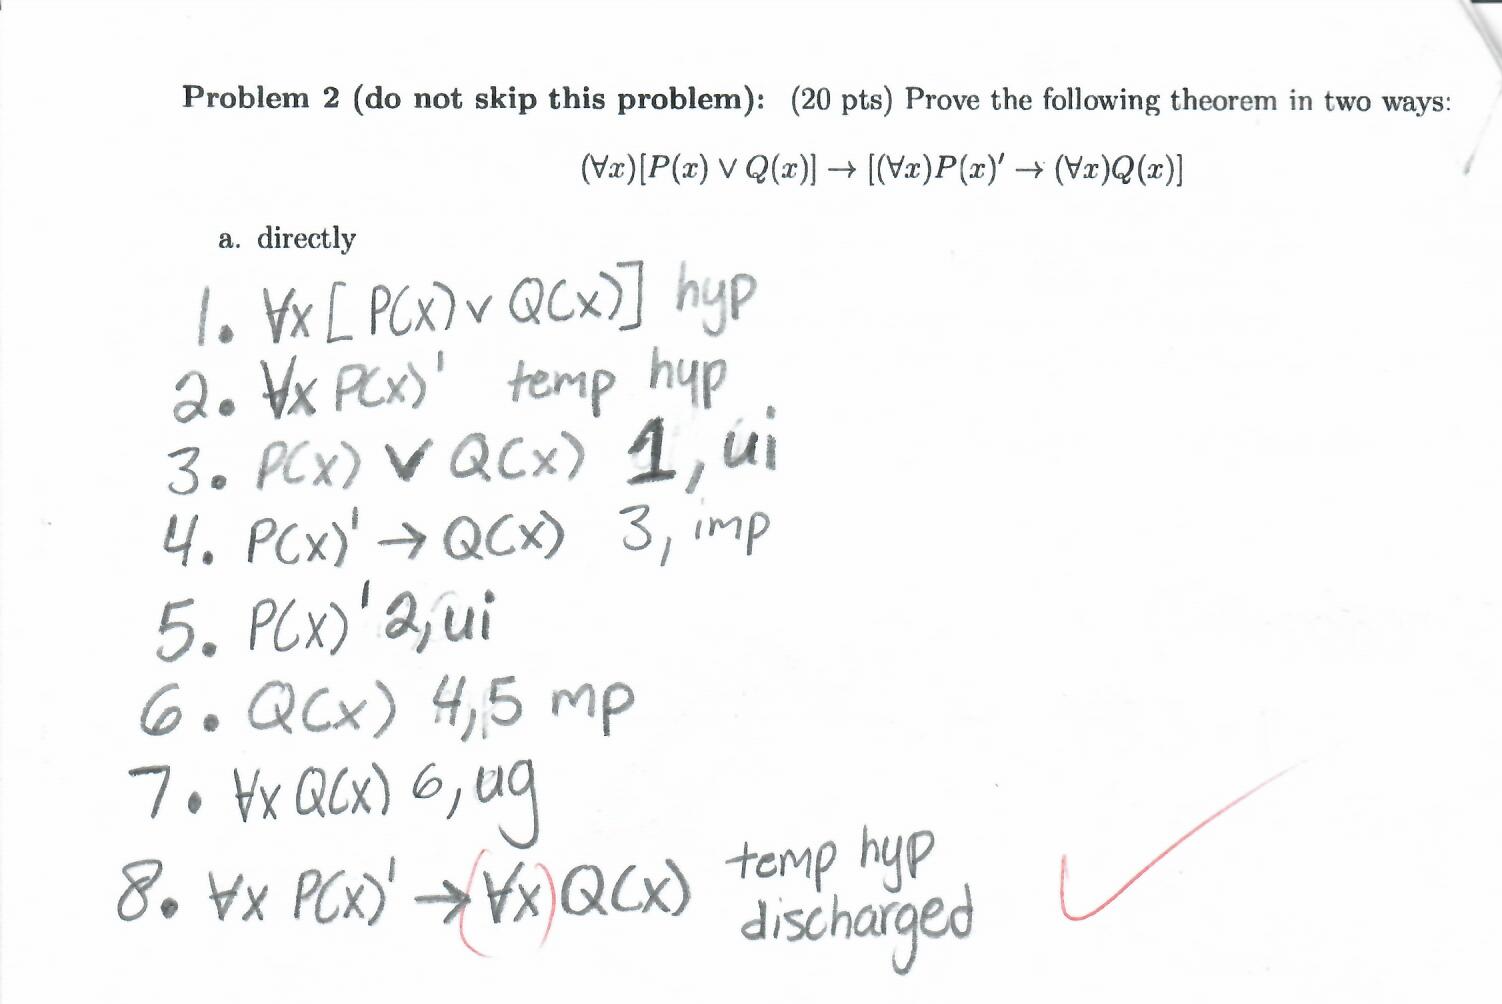 Problem 2 (do not skip this problem): (20 pts) Prove the following theorem in two ways:
(∀x)[P(x) ∨ Q(x)] → [(∀x)P(x)′ → (∀x)Q(x)]
a. directly
1. ∀x [P(x) ∨ Q(x)] hyp
2. ∀x P(x)' temp hyp
3. P(x) ∨ Q(x) 1, ui
4. P(x)' → Q(x) 3, imp
5. P(x)' 2, ui
6. Q(x) 4,5 mp
7. ∀x Q(x) 6, ug
8. ∀x P(x)' → (∀x) Q(x) temp hyp
discharged